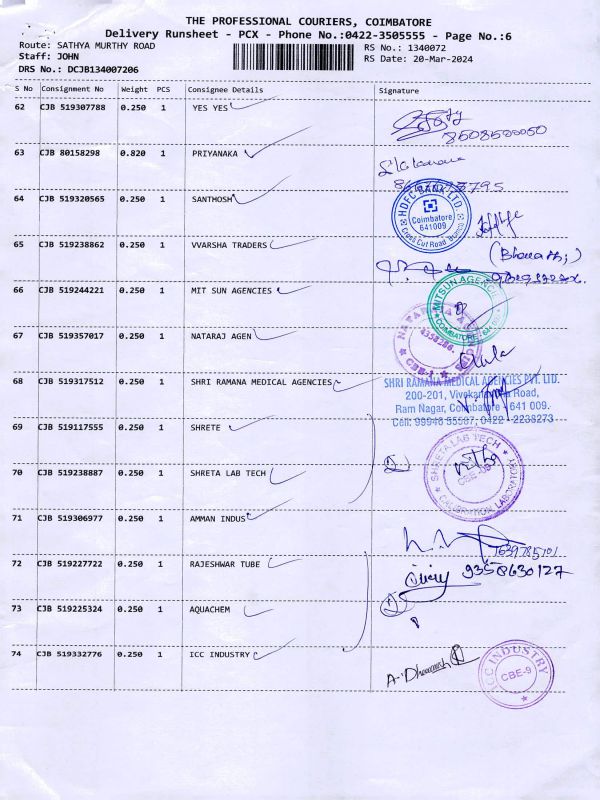 THE PROFESSIONAL COURIERS, COIMBATORE
Delivery Runsheet - PCX - Phone No.:0422-3505555 - Page No.:6
Route: SATHYA MURTHY ROAD
RS No.: 1340072
Staff: JOHN
RS Date: 20-Mar-2024
DRS No.: DCJB134007206
S No Consignment No Weight PCS Consignee Details Signature
62 CJB 519307788 0.250 1 YES YES
8508520050
63 CJB 80158298 0.820 1 PRIYANAKA
64 CJB 519320565 0.250 1 SANTHOSH
HDFC BANK LTD
Coimbatore
641009
Cross Cut Road Branch
65 CJB 519238862 0.250 1 VVARSHA TRADERS
66 CJB 519244221 0.250 1 MIT SUN AGENCIES
MITSUN AGENCIES
COIMBATORE
67 CJB 519357017 0.250 1 NATARAJ AGEN
CBE-1
68 CJB 519317512 0.250 1 SHRI RAMANA MEDICAL AGENCIES
SHRI RAMANA MEDICAL AGENCIES PVT. LTD.
200-201, Vivekananda Road,
Ram Nagar, Coimbatore - 641 009.
Cell: 99946 55587, 0422 - 2233273
69 CJB 519117555 0.250 1 SHRETE
70 CJB 519238887 0.250 1 SHRETA LAB TECH
SHRETA LAB TECH
CALIBRATION LABORATORY
71 CJB 519306977 0.250 1 AMMAN INDUS
72 CJB 519227722 0.250 1 RAJESHWAR TUBE
9358630127
73 CJB 519225324 0.250 1 AQUACHEM
74 CJB 519332776 0.250 1 ICC INDUSTRY
ICC INDUSTRY
CBE-9